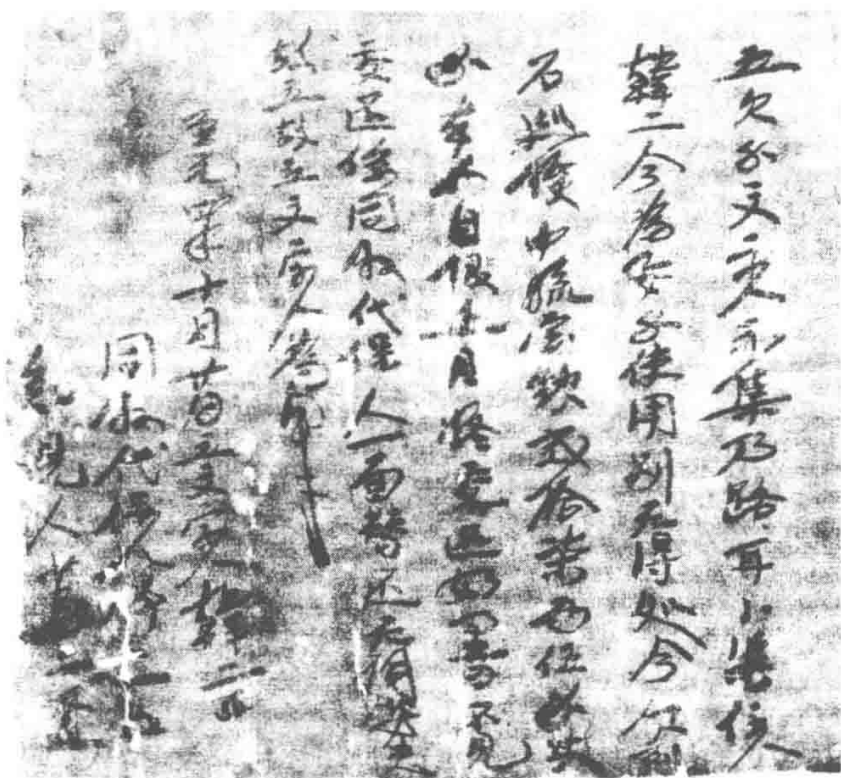 立欠錢文字人亦集乃路耳卜渠住人
韓二今為要錢使用別无得处今欠到
石巡檢中統宝鈔貳拾柒両伍錢其
錢本人自限正月終交还如至日不見
交还係同取代保人一面替还无詞
故立故立文字人為用
至元四年十月廿日立文字人韓二
同取代保人
知見人葛二